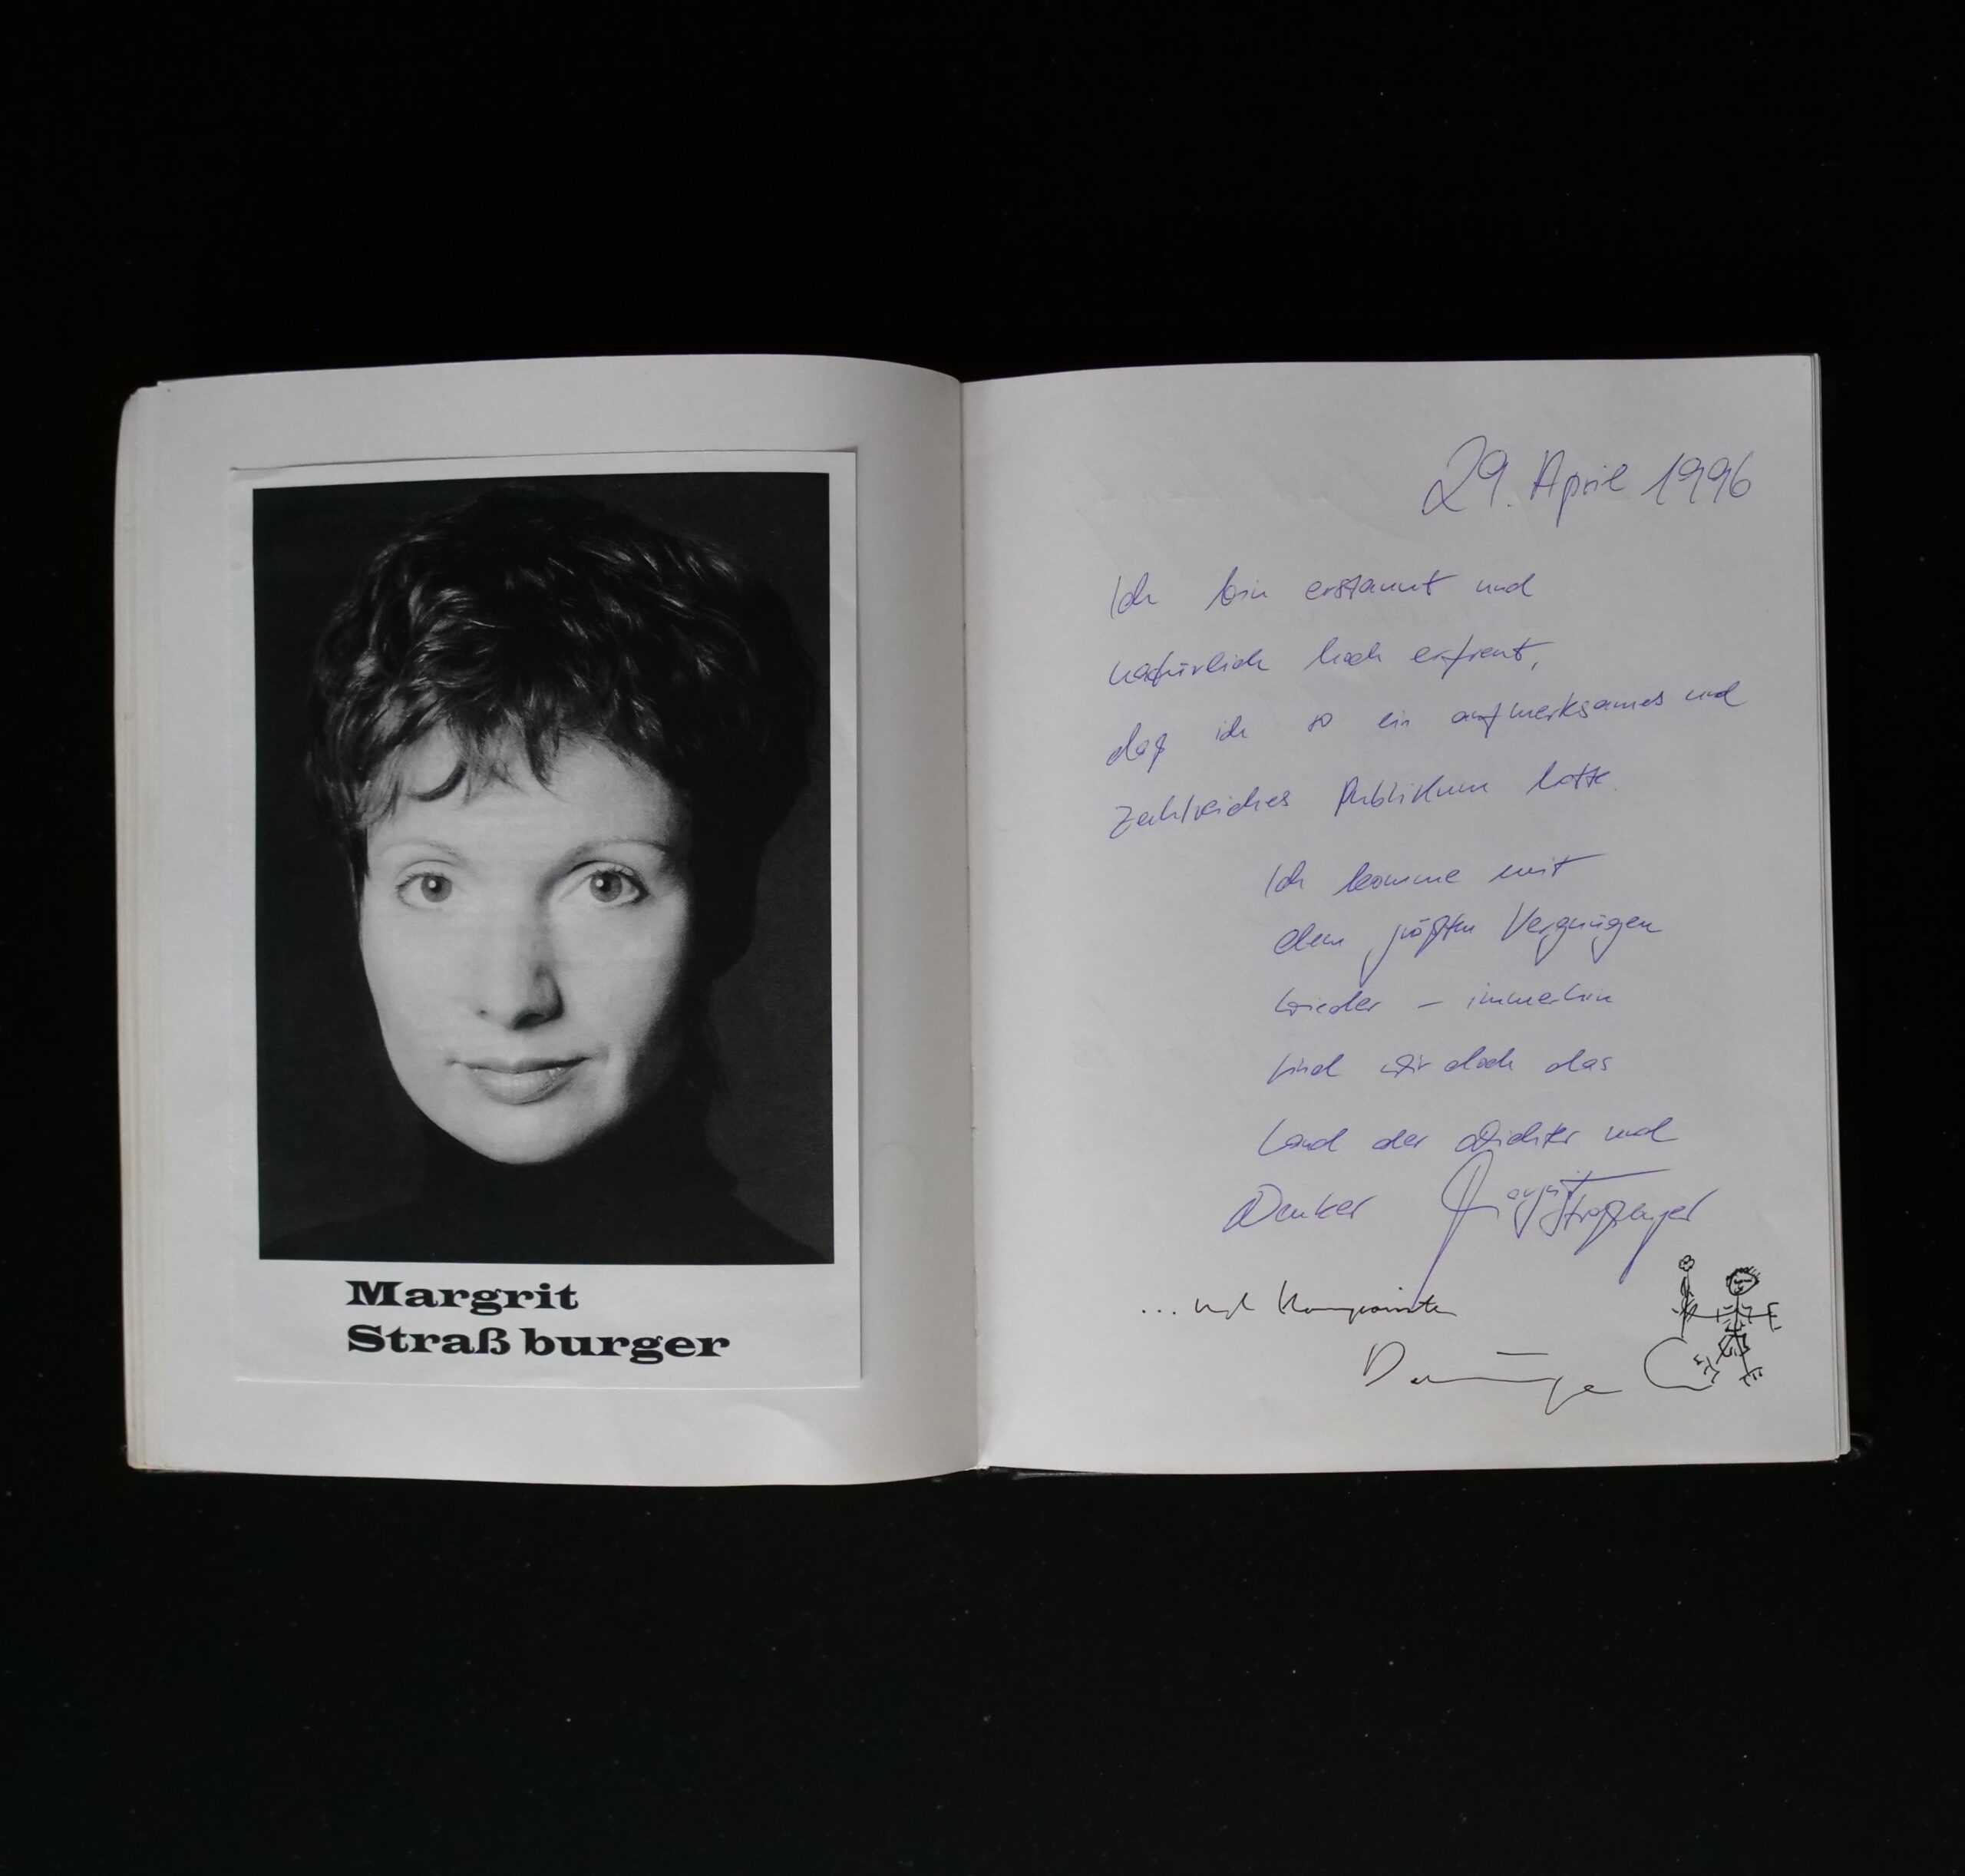 Margrit
Straßburger
29. April 1996
Ich bin erstaunt und
natürlich hoch erfreut,
daß ich so ein aufmerksames und
zahlreiches Publikum hatte.
Ich komme mit
dem größten Vergnügen
wieder – immerhin
sind wir doch das
Land der Dichter und
Denker Margrit Straßburger
... und Komponisten